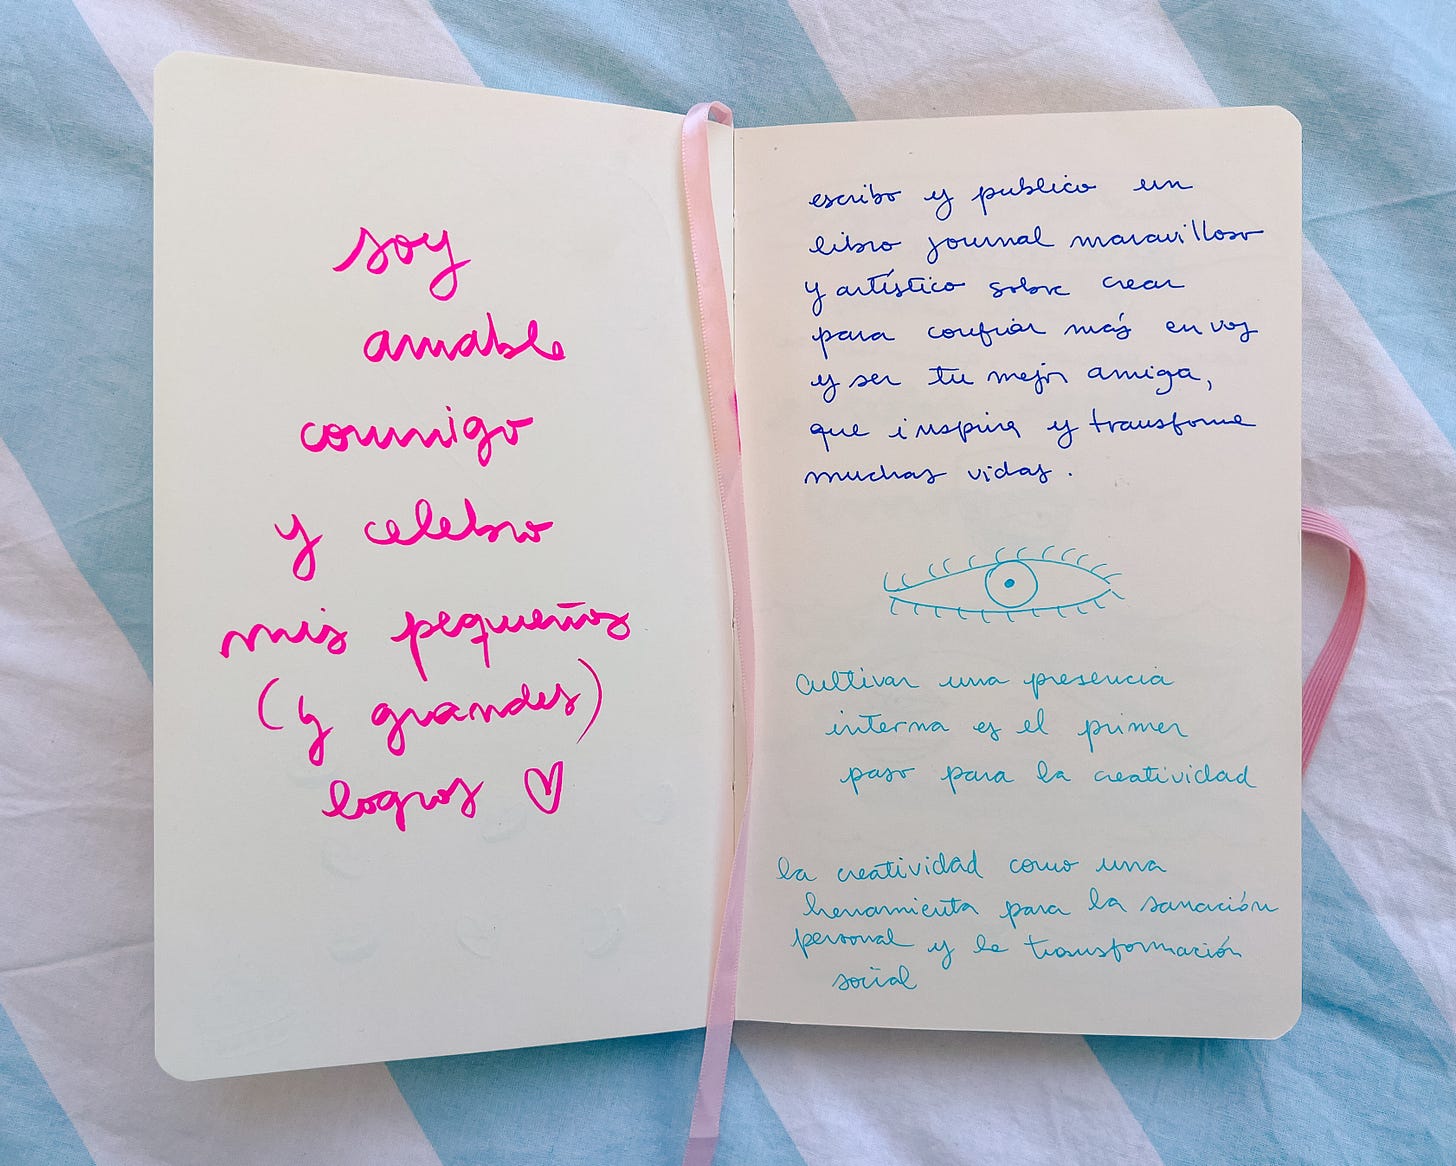 soy
amable
conmigo
y celebro
mis pequeños
(y grandes)
logros
escribo y publico un
libro journal maravilloso
y artístico sobre crear
para confiar más en vos
y ser tu mejor amiga,
que inspira y transforma
muchas vidas.
cultivar una presencia
interna es el primer
paso para la creatividad
la creatividad como una
herramienta para la sanación
personal y la transformación
social